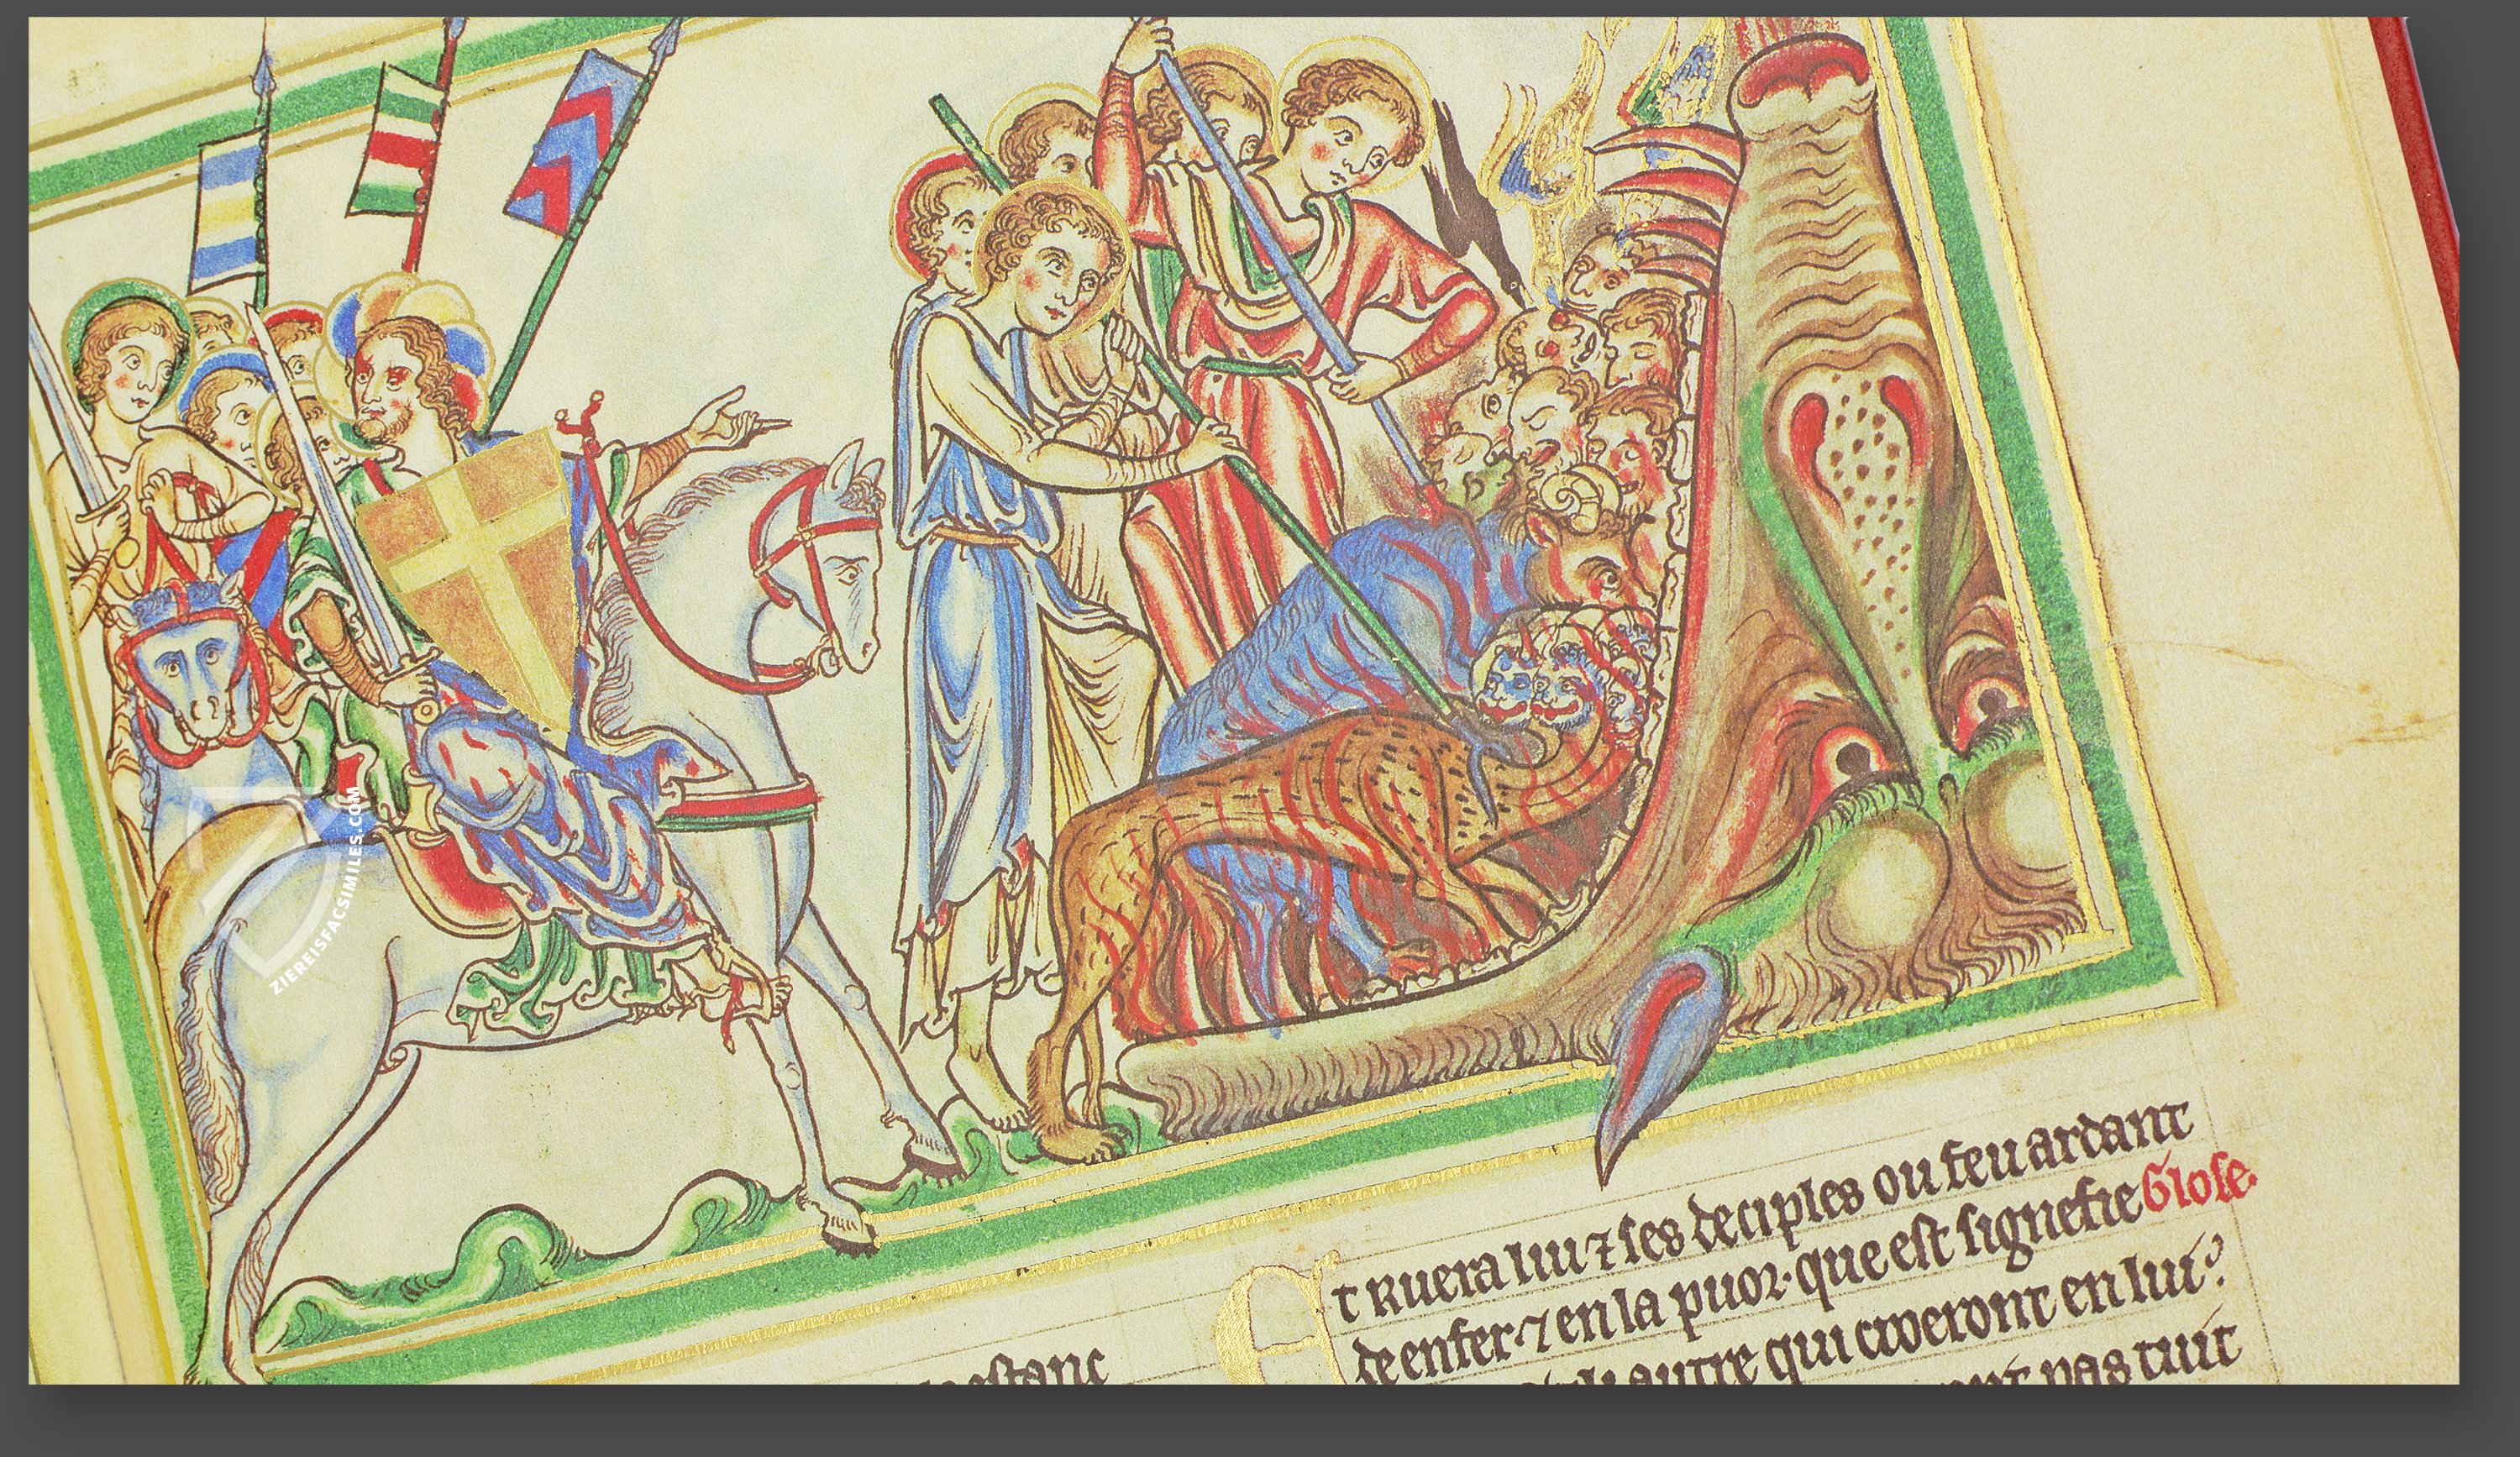 ZIEREISFACSIMILES.COM
Et ruera lui ⁊ ses deciples ou feu ardant
de enfer ⁊ en la puor· que est signefie Glose·
autre qui croeront en lui?
pas tuit